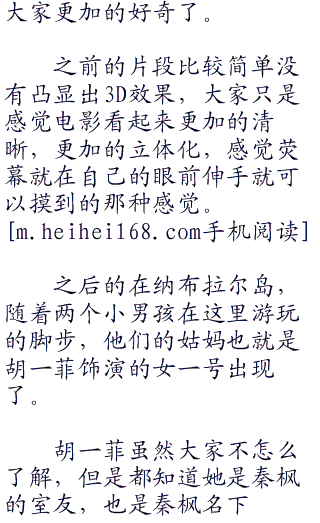 大家更加的好奇了。
之前的片段比较简单没
有凸显出3D效果，大家只是
感觉电影看起来更加的清
晰，更加的立体化，感觉荧
幕就在自己的眼前伸手就可
以摸到的那种感觉。
[m.heihei168.com手机阅读]
之后的在纳布拉尔岛，
随着两个小男孩在这里游玩
的脚步，他们的姑妈也就是
胡一菲饰演的女一号出现
了。
胡一菲虽然大家不怎么
了解，但是都知道她是秦枫
的室友，也是秦枫名下